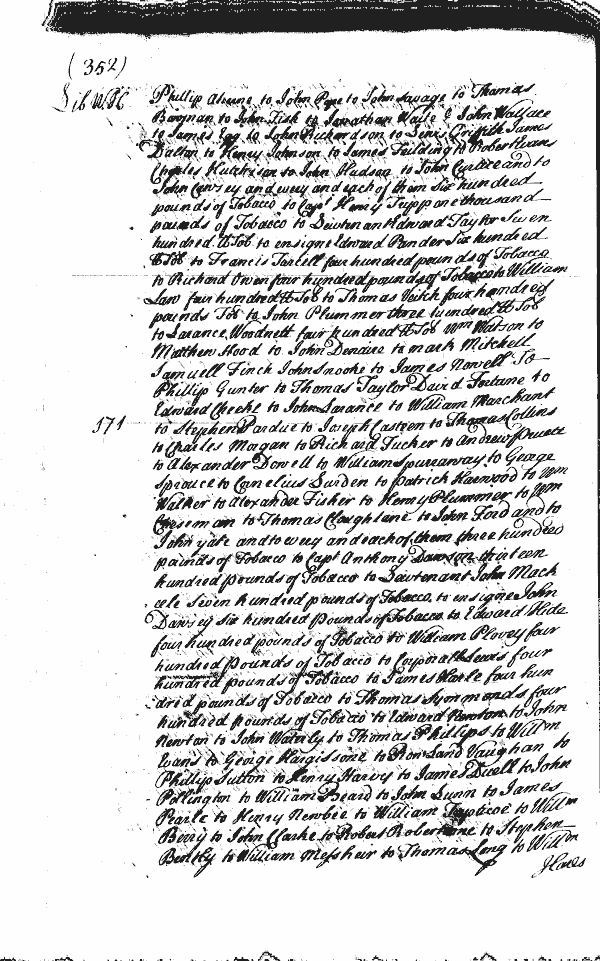 (352)
Lib WHC Phillip Aherne to John Pope to John Savage to Thomas
Bowman to John Fisk to Jonathan Waite & John Wallace
to James Esq to John Richardson to Lewis Griffith James
Dalton to Henry Johnson to James Feilding to Robert Evans
Charles Hutchison to John Hudson to John Curtice and to
John Causey and every and each of them Six hundred
pounds of Tobacco to Capt Henry Tripp one thousand
pounds of Tobacco to Leiutenant Edward Taylor Seven
hundred lb Tob to ensigne Edward Pander Six hundred
lb Tob to Francis Tarsell four hundred pounds of Tobacco
to Richard Owen four hundred pounds of Tobacco to William
Law four hundred lb Tob to Thomas Veitch four hundred
pounds Tob to John Plummer three hundred lb Tob
to Larance Woodnett four hundred lb Tob Wm Watson to
Matthew Hood to John Denaire to mark Mitchell
Samuell Finch John Snooke to James Nowell To
Phillip Gunter to Thomas Taylor David Fortune to
Edward Cheeke to John Larance to William Marchant
171 to Stephen Pardue to Joseph Casteen to Thomas Collins
to Charles Morgan to Richard Tucker to Andrew
to Alexander Dowell to William Spurraway to George
Sprouce to Cornelius Surden to Patrick Harwood to Wm
Walker to Alexander Fisher to Henry Plummer to Wm
Cheseman to Thomas Cloughlane to John Ford and to
John Yate and to every and each of them three hundred
pounds of Tobacco to Capt Anthony Dawson thirteen
hundred pounds of Tobacco to Leiutenant John Mack
eele Seven hundred pounds of Tobacco to ensigne John
Dawsey Six hundred Pounds of Tobacco to Edward Hide
four hundred pounds of Tobacco to William Plovey four
hundred Pounds of Tobacco to Corporall Lewis four
hundred pounds of Tobacco to James Hasle four hun
dred pounds of Tobacco to Thomas Symmonds four
hundred pounds of Tobacco to Edward Newton to John
Newton to John Waterly to Thomas Phillips to Willm
Evans to George Hargissone to Rowland Vaughan to
Phillip Sutton to Henry Harvy to James Duell to John
Pollington to William Beard to John Lunn to James
Pearle to Henry Newbee to William to Willm
Berry to John Clarke to Robert Robertsone to Stephen
Bently to William Messheir to Thomas Long to Willm